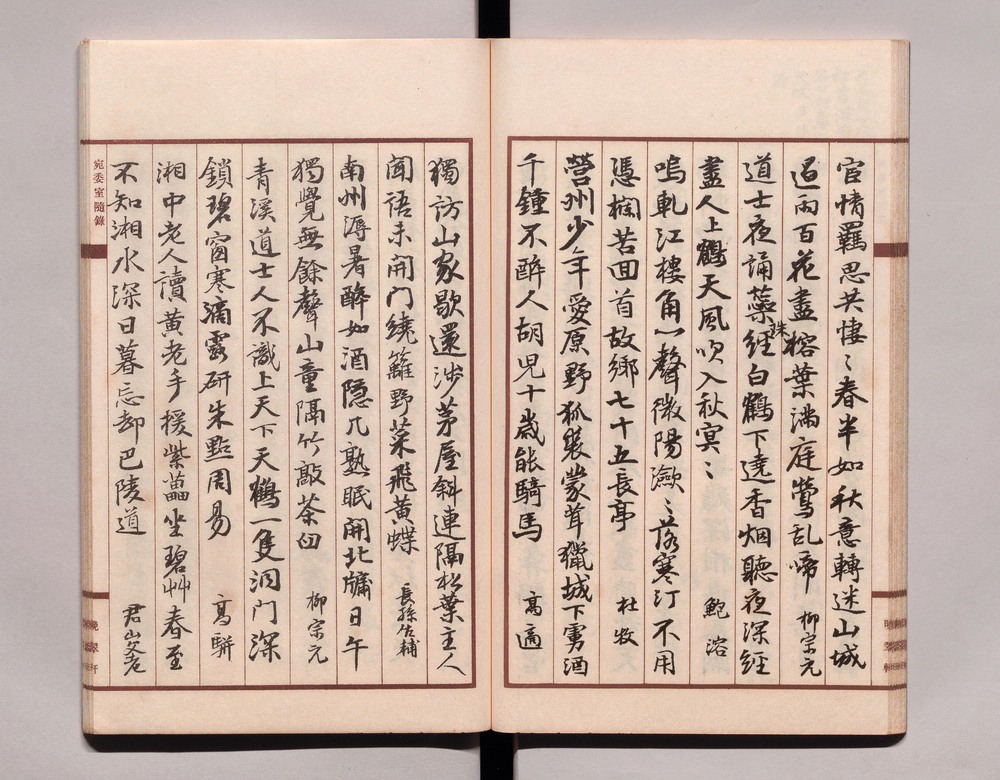 宦情羈思共悽〻春半如秋意轉迷山城
過雨百花盡榕葉滿庭鶯乱啼 柳宗元
道士夜誦蘂珠經白鶴下遶香烟聽夜深經
盡人上鶴天風吹入秋冥〻 鮑溶
嗚軋江樓角一聲微陽瀲〻落寒汀不用
憑欄苦回首故鄉七十五長亭 杜牧
營州少年愛原野狐裘蒙茸獵城下虜酒
千鍾不醉人胡兒十歲能騎馬 高適
獨訪山家歇還涉茅屋斜連隔松葉主人
聞語未開門繞籬野菜飛黃蝶 長孫佐輔
南州溽暑醉如酒隱几熟眠開北牖日午
獨覺無餘聲山童隔竹敲茶臼 柳宗元
青溪道士人不識上天下天鶴一隻洞門深
鎖碧窗寒滴露研朱點周易 高駢
湘中老人讀黃老手援紫藟坐碧艸春至
不知湘水深日暮忘却巴陵道 君山父老
宛委室隨錄